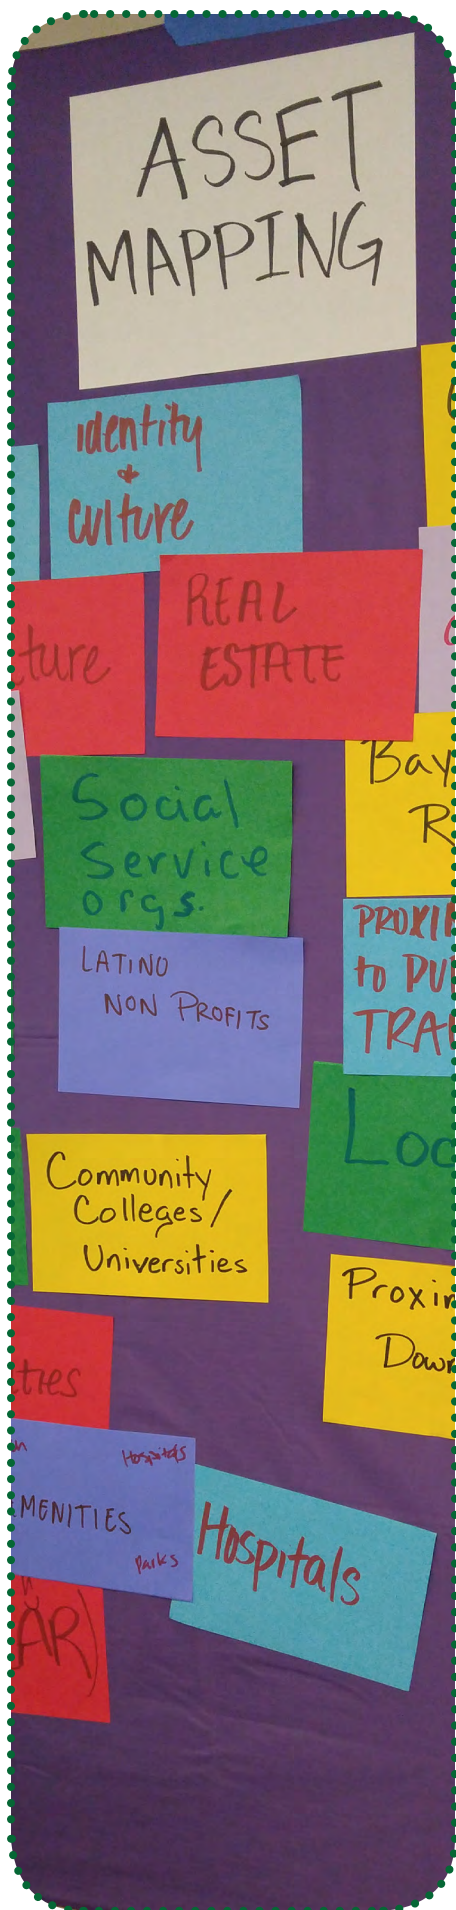 ASSET
MAPPING
identity
+
culture
REAL
ESTATE
Social
Service
orgs.
Bay
R
LATINO
NON PROFITS
PROXI
to PU
TRA
Loc
Community
Colleges/
Universities
Proxi
Dow
ties
Hospitals
MENITIES
Parks
Hospitals
AR)